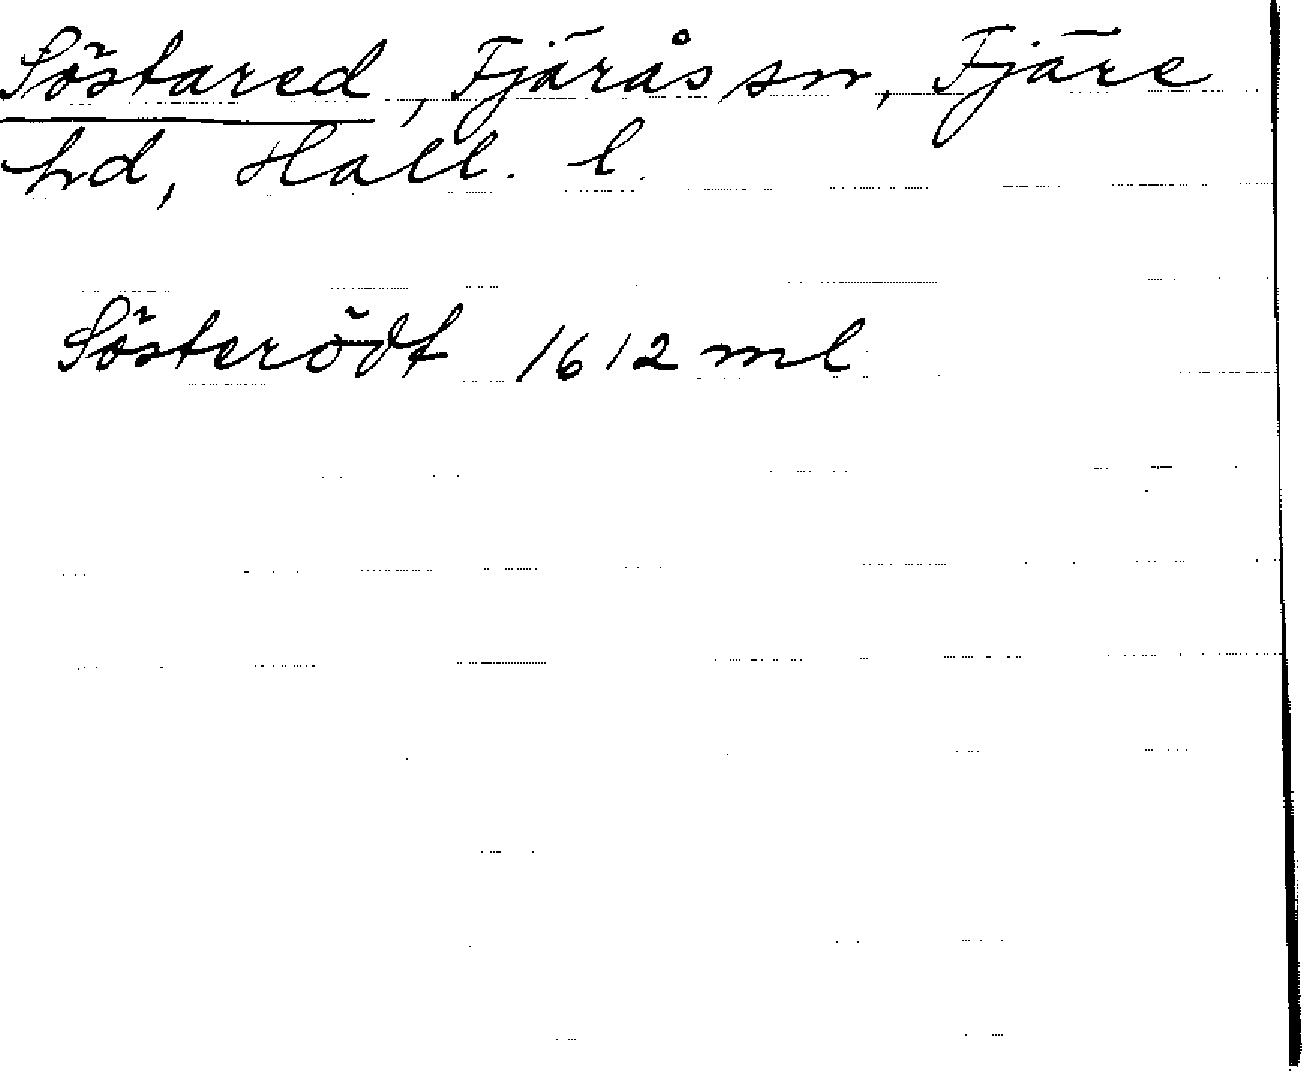 Söstared, Fjärås sn, Fjäre
hd, Hall. l.
Sösterödt 1612 ml